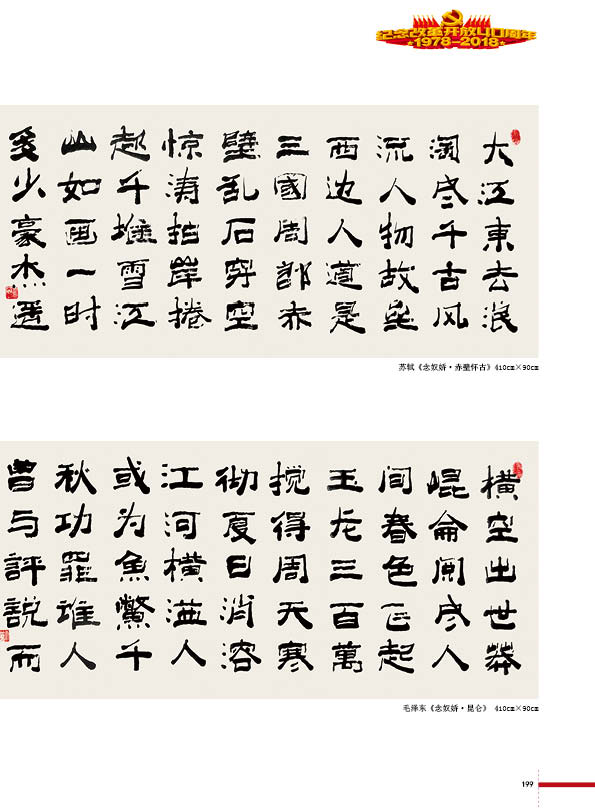 纪念改革开放40周年
1978-2018
大江東去浪
淘尽千古风
流人物故垒
西边人道是
三國周郎赤
壁乱石穿空
惊涛拍岸捲
起千堆雪江
山如画一时
多少豪杰遥
苏轼《念奴娇·赤壁怀古》410cm×90cm
横空出世莽
崐侖阅尽人
间春色飞起
玉龙三百萬
搅得周天寒
彻夏日消溶
江河横溢人
或为鱼鱉千
秋功罪谁人
曾与評説而
毛泽东《念奴娇·昆仑》 410cm×90cm
199